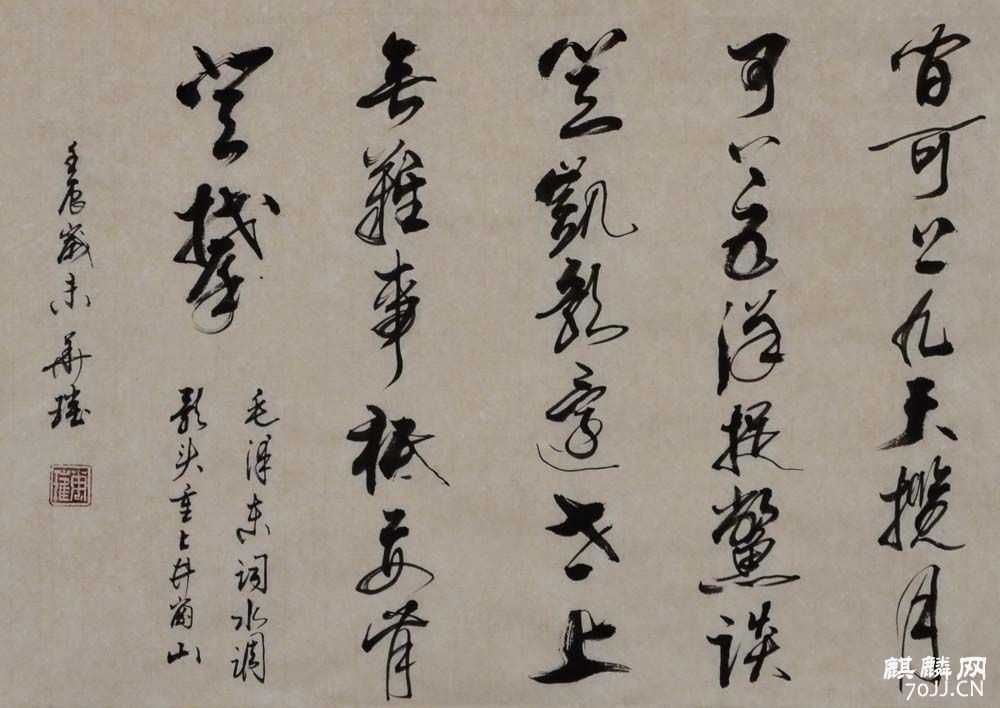 可上九天揽月
可下五洋捉鱉谈
笑凱歌還世上
無難事祇要肯
登攀
毛泽东词水调
歌头重上井岗山
壬辰歲末華
麒麟网
70JJ.CN